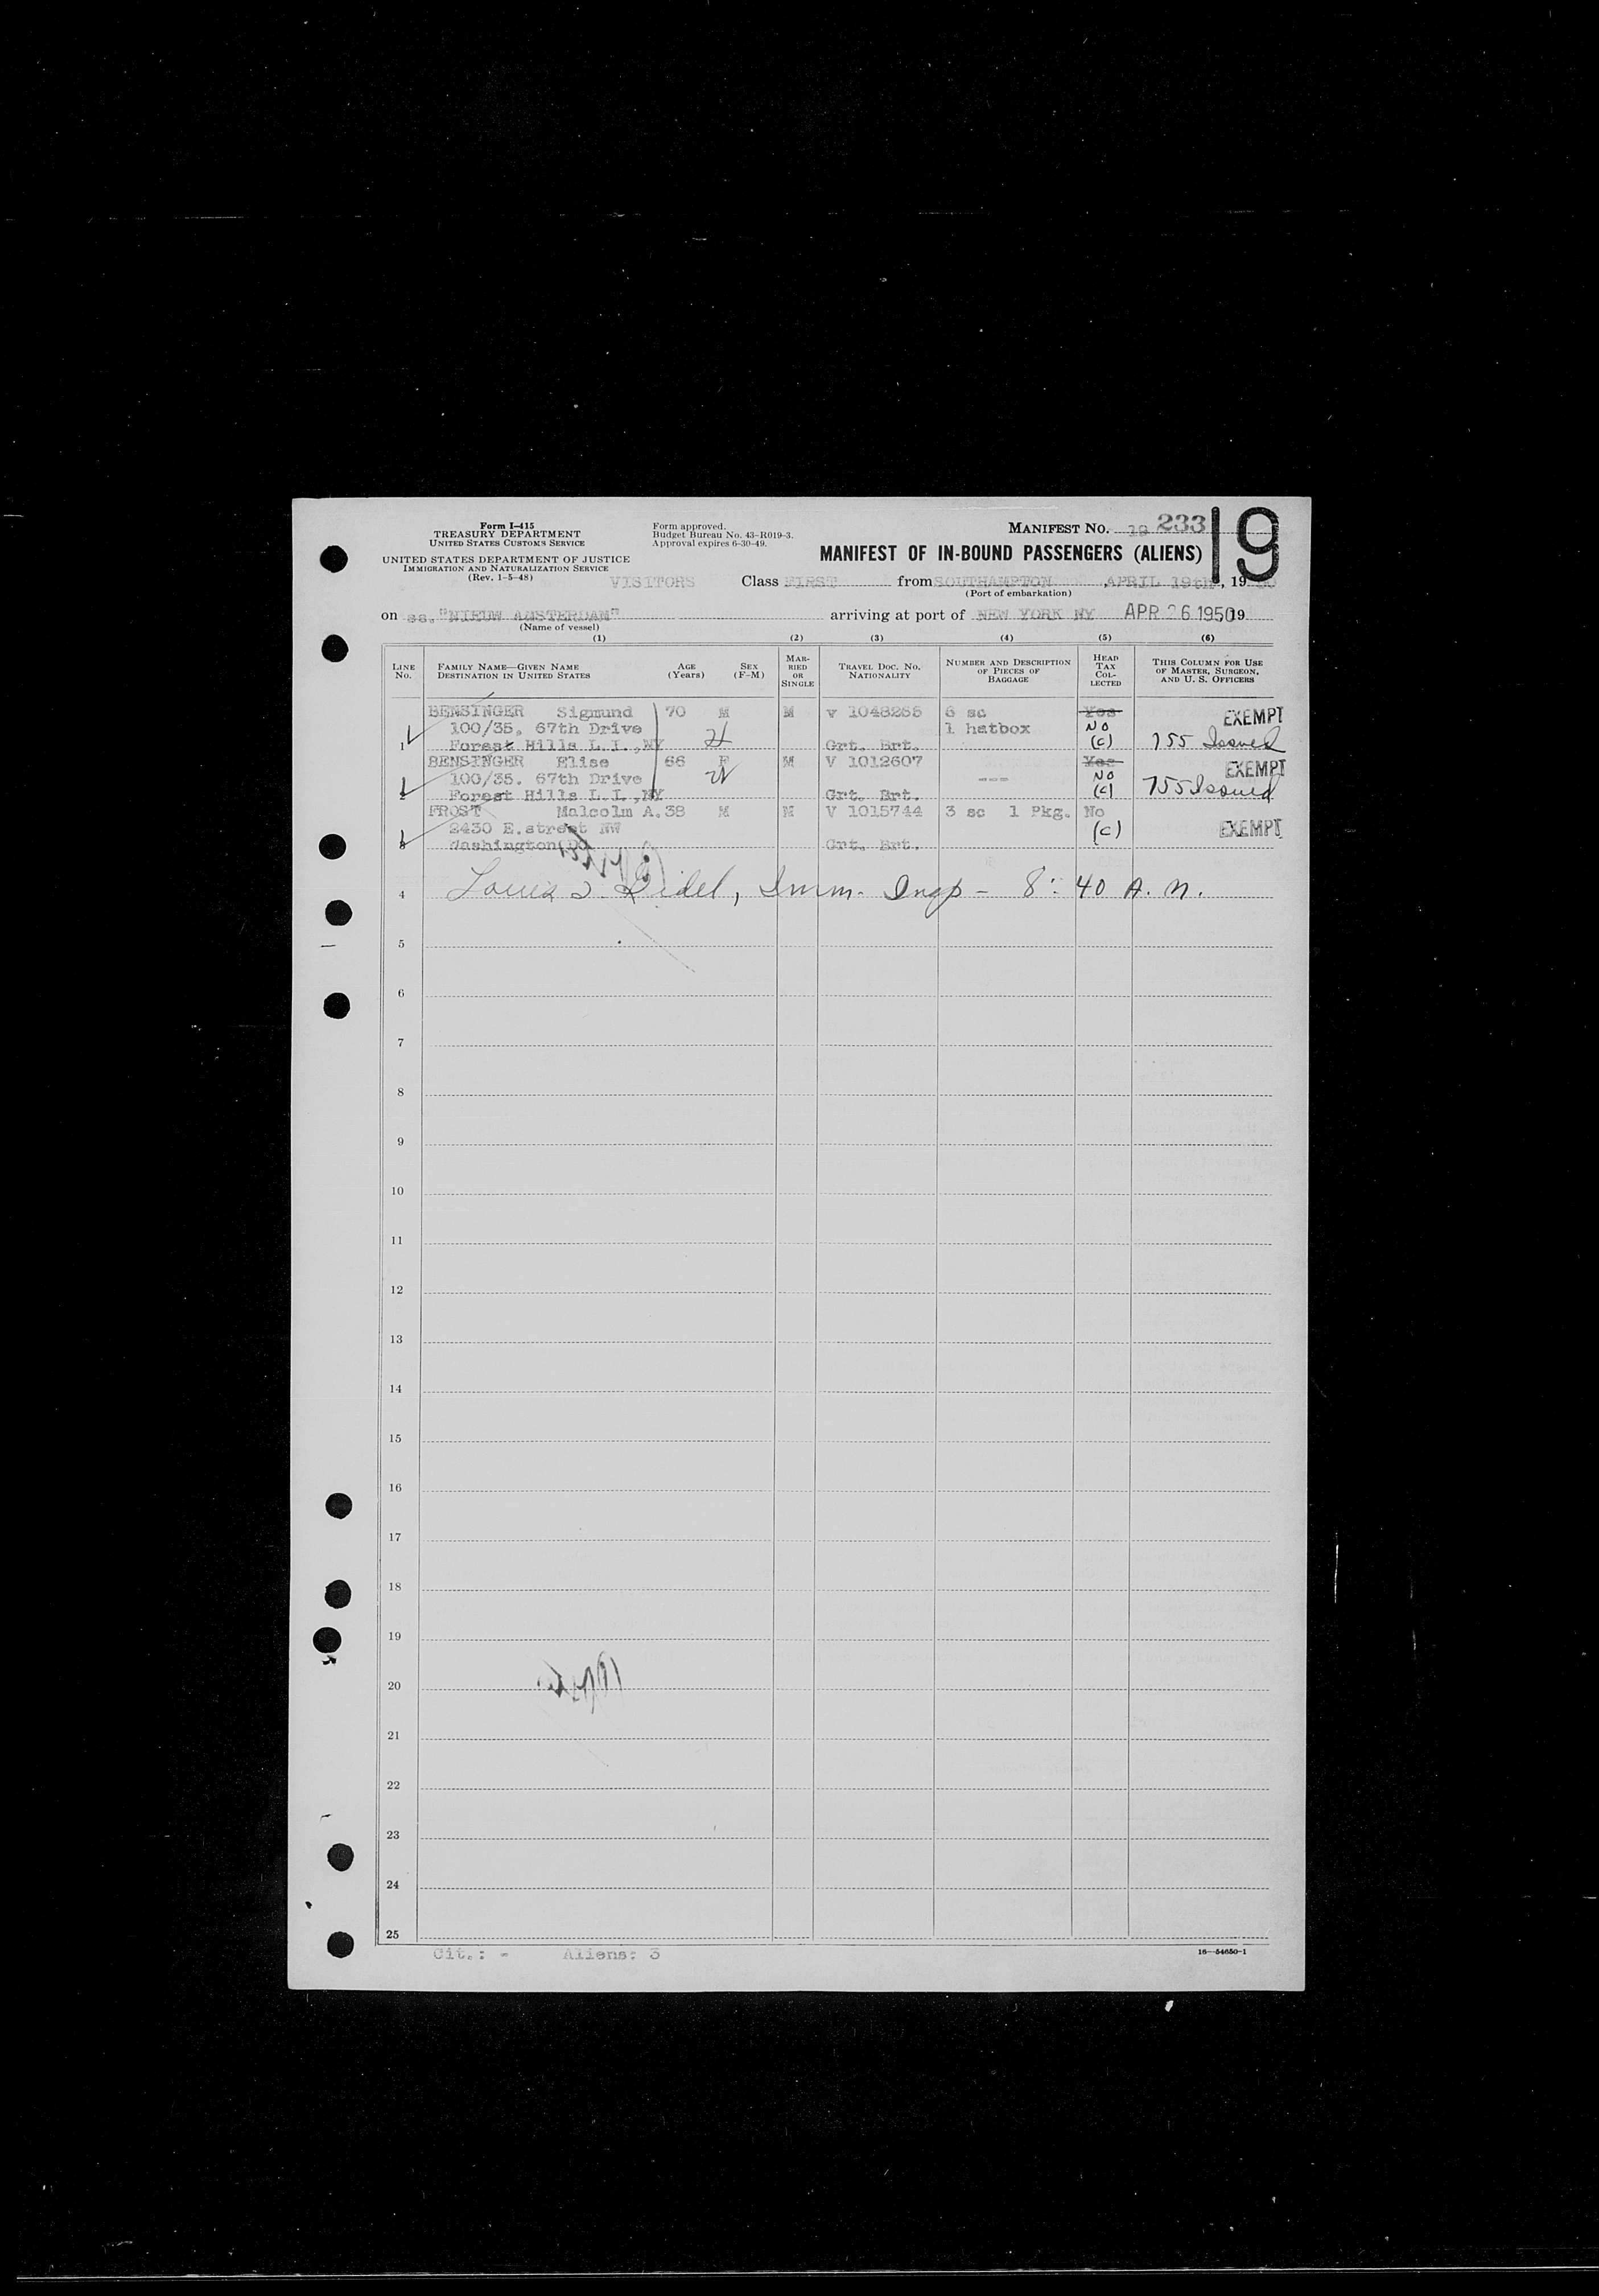 Form I-415
TREASURY DEPARTMENT
UNITED STATES CUSTOMS SERVICE
UNITED STATES DEPARTMENT OF JUSTICE
IMMIGRATION AND NATURALIZATION SERVICE
(Rev. 1-5-48)
Form approved.
Budget Bureau No. 43-R019-3.
Approval expires 6-30-49.
MANIFEST NO. 19 233 19
MANIFEST OF IN-BOUND PASSENGERS (ALIENS)
VISITORS Class FIRST from SOUTHAMPTON, APRIL 19th, 19
(Port of embarkation)
on ss. "NIEUW AMSTERDAM" arriving at port of NEW YORK NY APR 26 1950 19
(Name of vessel)
(1) (2) (3) (4) (5) (6)
LINE NO. FAMILY NAME—GIVEN NAME DESTINATION IN UNITED STATES AGE (Years) SEX (F-M) MARRIED OR SINGLE TRAVEL DOC. NO. NATIONALITY NUMBER AND DESCRIPTION OF PIECES OF BAGGAGE HEAD TAX COLLECTED THIS COLUMN FOR USE OF MASTER, SURGEON, AND U. S. OFFICERS
BENSINGER Sigmund 70 M M v 1048286 6 sc Yes EXEMPT
100/35, 67th Drive 1 hatbox No
1 Forest Hills L.I.,NY Grt. Brt. (c) 755 Issued
BENSINGER Elise 66 F M V 1012607 Yes EXEMPT
100/35. 67th Drive --- No
2 Forest Hills L.I.,NY Grt. Brt. (c) 755 Issued
FROST Malcolm A. 38 M M V 1015744 3 sc 1 Pkg. No
2430 E.street NW (c) EXEMPT
3 Washington DC Grt. Brt.
4 Louis Imm. Insp - 8:40 A.M.
5
6
7
8
9
10
11
12
13
14
15
16
17
18
19
20
21
22
23
24
25
Cit.: - Aliens: 3
16—54650-1